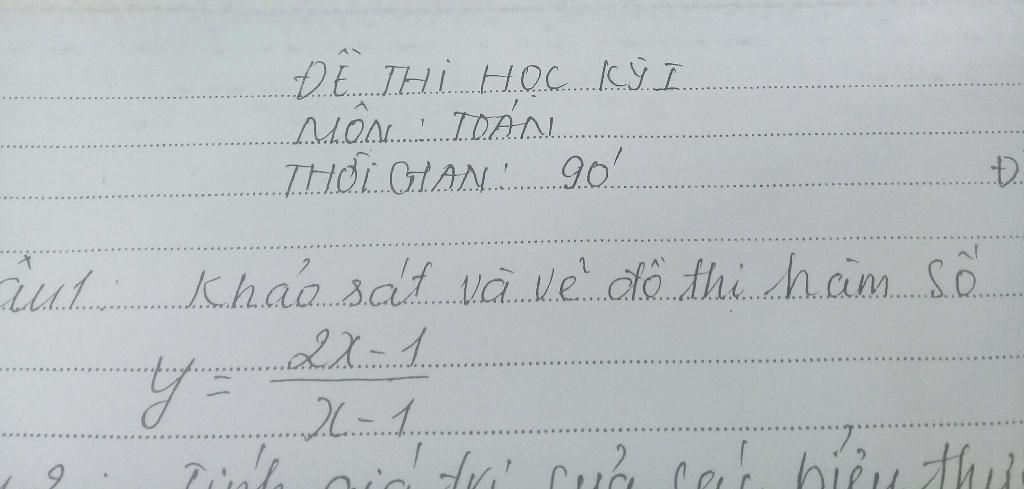 ĐỀ THI HỌC KỲ I
MÔN: TOÁN
THỜI GIAN: 90'
Đ
âu1: Khảo sát và vẻ đồ thị hàm số
y = \frac{2x-1}{x-1}
2: Tính giá trị của các biểu thứ